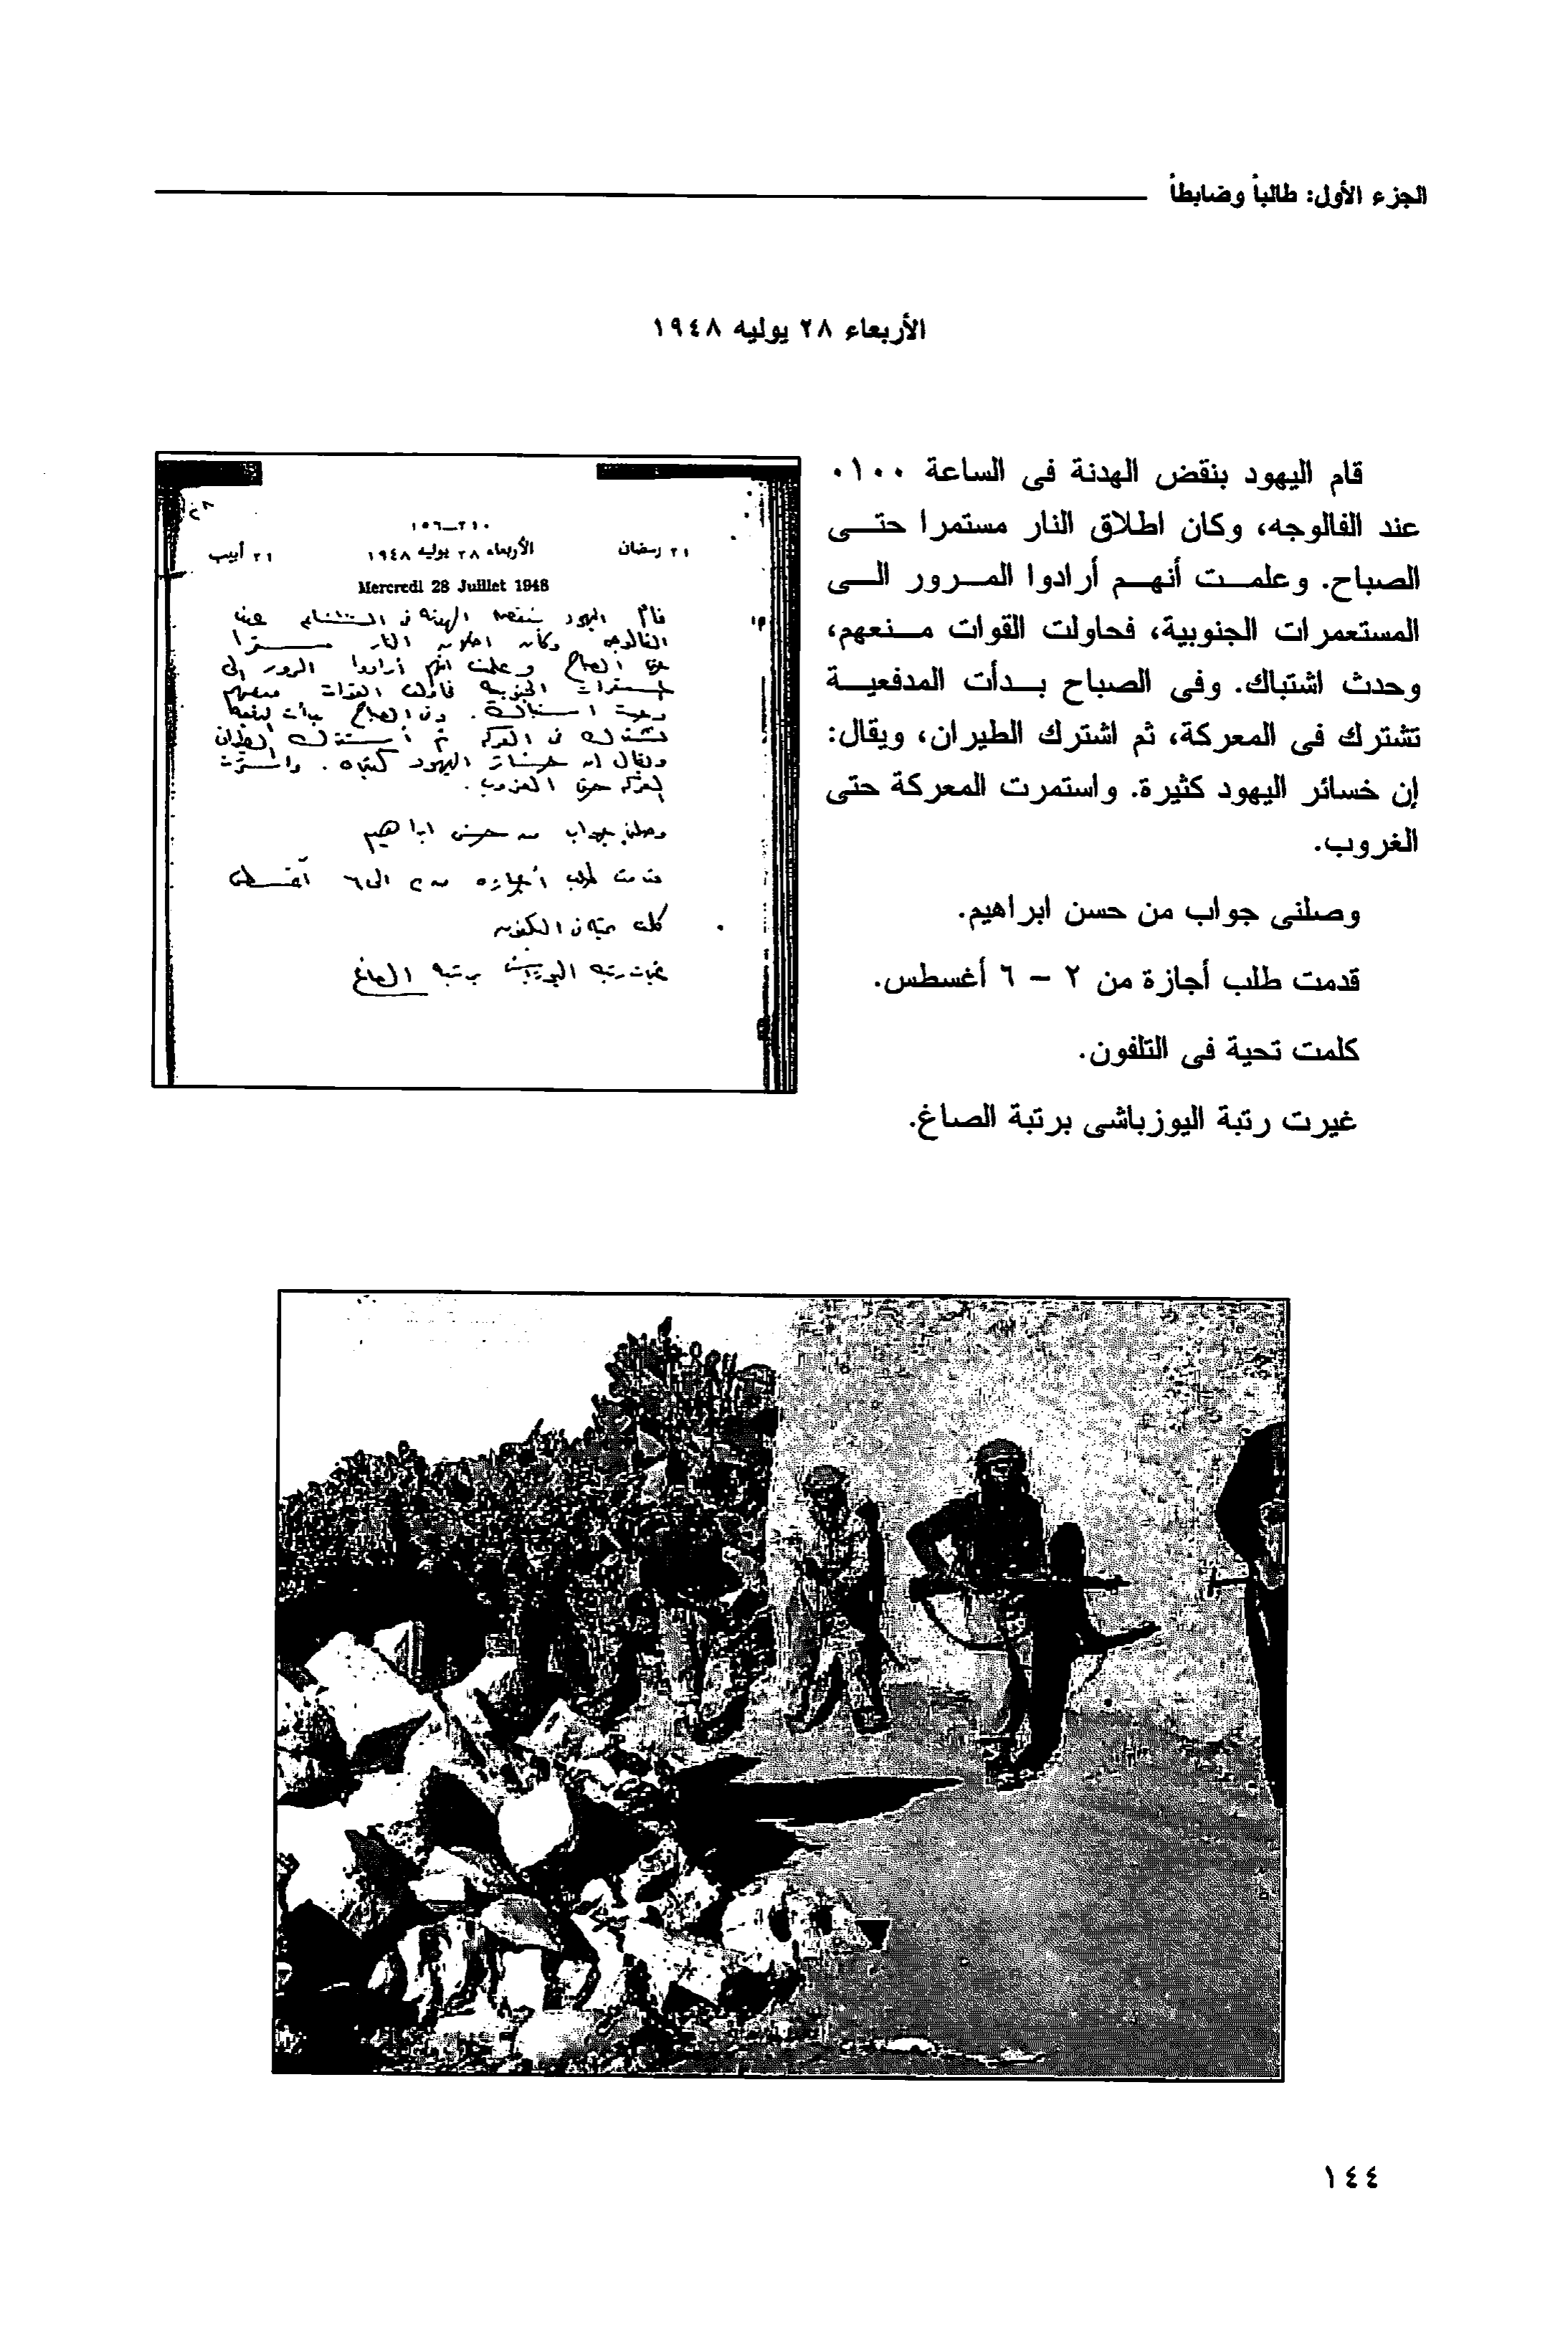 الجزء الأول: طالباً وضابطاً
الأربعاء ٢٨ يوليه ١٩٤٨
قام اليهود بنقض الهدنة فى الساعة ٠١٠٠
عند الفالوجه، وكان اطلاق النار مستمرا حتى
الصباح. وعلمت أنهم أرادوا المرور الى
المستعمرات الجنوبية، فحاولت القوات منعهم،
وحدث اشتباك. وفى الصباح بدأت المدفعية
تشترك فى المعركة، ثم اشترك الطيران، ويقال:
إن خسائر اليهود كثيرة. واستمرت المعركة حتى
الغروب.
وصلنى جواب من حسن ابراهيم.
قدمت طلب أجازة من ٢ – ٦ أغسطس.
كلمت تحية فى التلفون.
غيرت رتبة اليوزباشى برتبة الصاغ.
٢١٠–١٥٦
٢١ رمضان الأربعاء ٢٨ يوليه ١٩٤٨ ٢١ أبيب
Mercredi 28 Juillet 1948
قام اليهود بنقض الهدنة فى عند
الفالوجه وكان اطلاق النار مستمرا
حتى الصباح وعلمت انهم أرادوا المرور إلى
المستعمرات الجنوبية فحاولت القوات منعهم
وحدث اشتباك. وفى الصباح بدأت المدفعية
تشترك فى المعركة ثم اشترك الطيران
ويقال ان خسائر اليهود كثيرة. واستمرت
المعركة حتى الغروب.
وصلنى جواب من حسن ابراهيم
قدمت طلب أجازة من ٢ الى ٦ أغسطس
كلمت تحية فى التلفون
غيرت رتبة اليوزباشى برتبة الصاغ
١٤٤